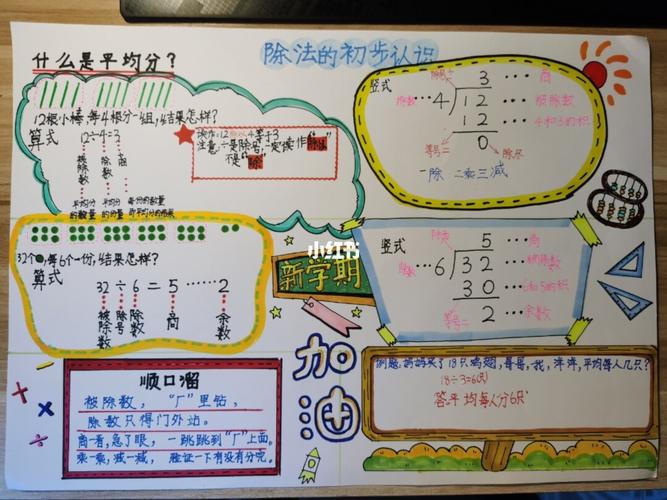 除法的初步认识
什么是平均分？
12根小棒，每4根分一组，结果怎样？
算式 12÷4=3
被除数
除号
除数
商
读作：12除以4等于3
注意：÷是除号，一定读作“除以”
不是“除”
32个●，每6个一份，结果怎样？
算式
32÷6=5……2
被除数
除号
除数
商
余数
竖式
3……商
除数……4
12……被除数
12……4和3的积
0
等号=
除尽
一除 二乘三减
小红书
新学期
加油
竖式
5……商
除数……6
32……被除数
30……6和5的积
2……余数
等号=
顺口溜
被除数，“厂”里钻，
除数只得门外站。
商一看，急了眼，一跳跳到“厂”上面。
乘一乘，减一减，验证一下有没有分完。
例题：妈妈买了18只鸡翅，哥哥，我，洋洋，平均每人几只？
18÷3=6(只)
答：平均每人分6只